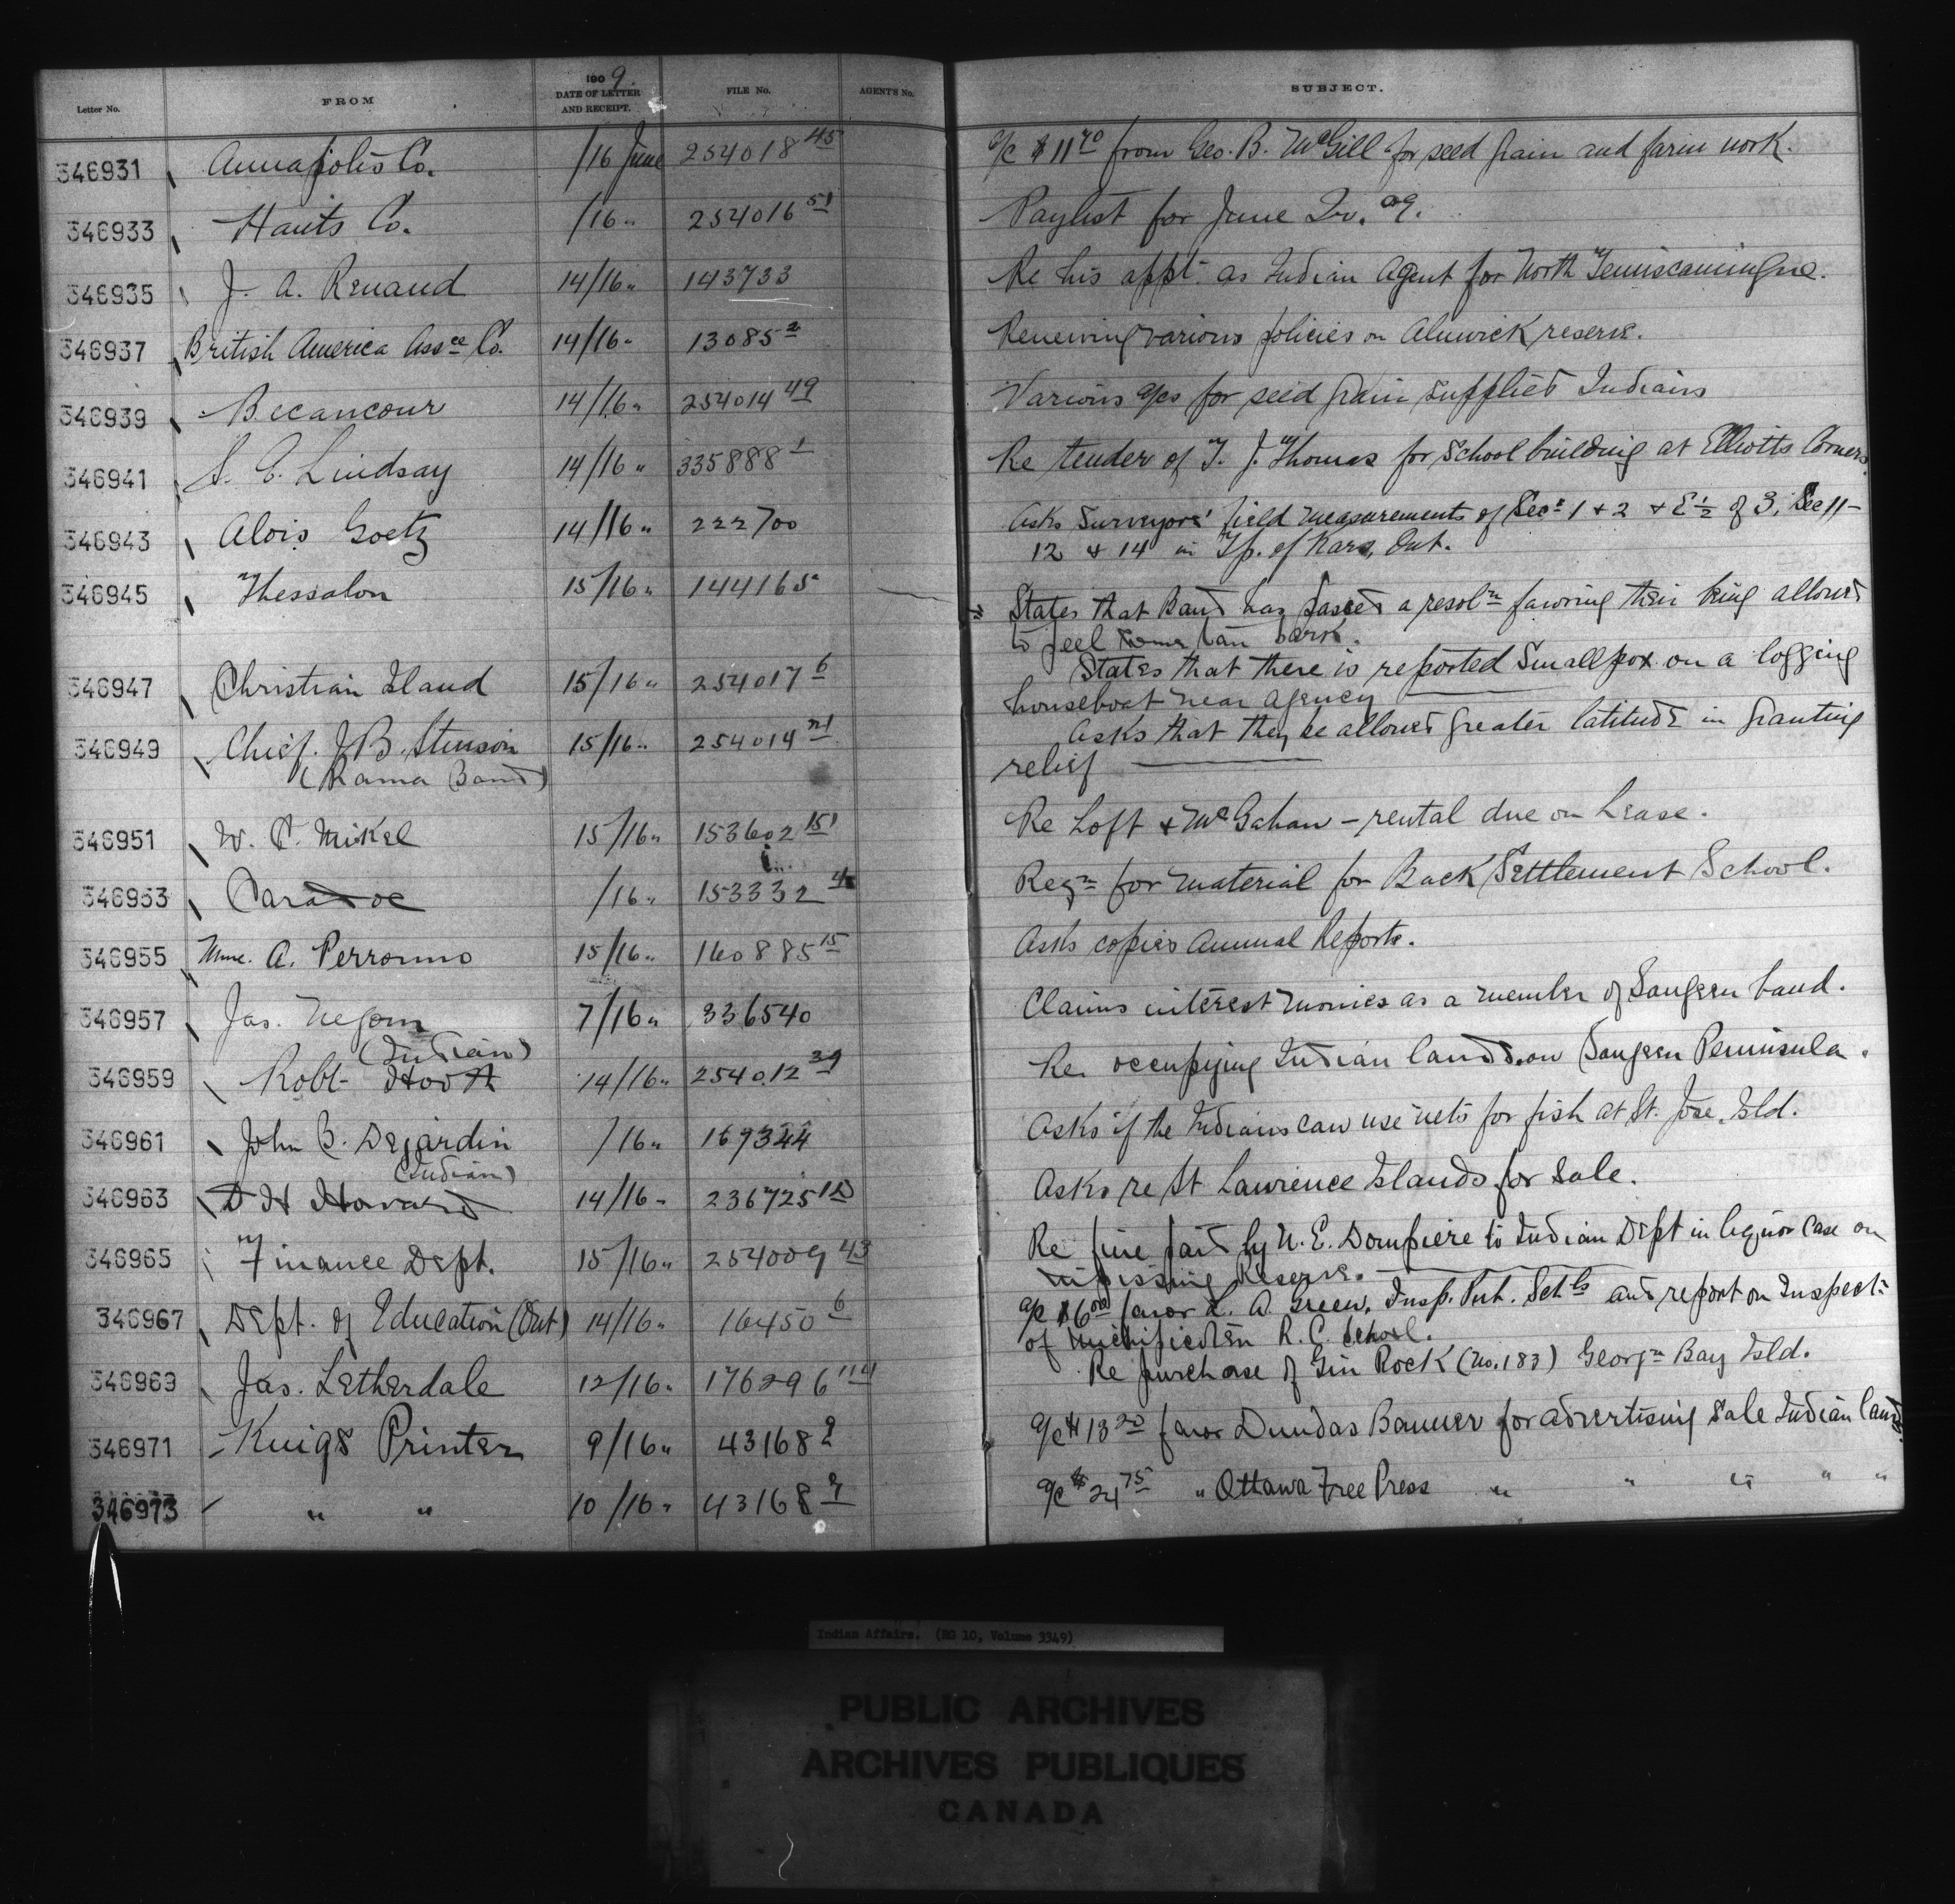 Letter No. FROM 1909. DATE OF LETTER AND RECEIPT. FILE No. AGENT'S No. SUBJECT.
346931 Annapolis Co. /16 June 254018 45 a/c $11 70 from Geo. B. McGill for seed grain and farm work.
346933 Hants Co. /16 " 254016 51 Paylist for June Qr. 09.
346935 J. A. Renaud 14/16 " 143733 Re his appt. as Indian Agent for North Temiscamingue.
346937 British America Assce Co. 14/16 " 13085 2 Renewing various policies on Alnwick reserve.
346939 Becancour 14/16 " 254014 49 Various a/cs for seed grain supplied Indians
346941 S. C. Lindsay 14/16 " 335888 1 Re tender of T. J. Thomas for School building at Elliotts Corners.
346943 Alois Goetz 14/16 " 222700 Asks Surveyors' field measurements of Secs 1 & 2 & E ½ of 3, Sec 11-
12 & 14 in Tp. of Kars, Ont.
346945 Thessalon 15/16 " 144165 States that Band has passed a resoln favoring their being allowed
to peel some tan bark.
346947 Christian Island 15/16 " 254017 6 States that there is reported Smallpox on a logging
houseboat near agency
346949 Chief. J. B. Stinson 15/16 " 254014 21 Asks that they be allowed greater latitude in granting
(Rama Band) relief
346951 W. C. Mikel 15/16 " 153602 151 Re Loft & McGahan - rental due on Lease.
346953 Caradoc /16 " 153332 Reqn for material for Back Settlement School.
346955 Mme. A. Perronno 15/16 " 160885 15 Asks copies Annual Reports.
346957 Jas. Negom 7/16 " 336540 Claims interest monies as a member of Saugeen band.
(Indian)
346959 Robt Hood 14/16 " 254012 39 Re. occupying Indian lands on Saugeen Peninsula.
346961 John B. Dejardin /16 " 169344 Asks if the Indians can use nets for fish at St. Jose. Isld.
(Indian)
346963 D H Howard 14/16 " 236725 Asks re St Lawrence Islands for Sale.
346965 Finance Dept. 15/16 " 254009 43 Re fine paid by N. E. Dompiere to Indian Dept in liquor case on
Nipissing Reserve.
346967 Dept. of Education (Ont) 14/16 " 16450 6 a/c $6 00 favor L. A. Green, Insp. Pub. Schls and report on Inspectn
of Michipicoten R. C. School.
346969 Jas. Letherdale 12/16 " 176296 114 Re purchase of Gin Rock (No. 183) Georgn Bay Isld.
346971 Kings Printer 9/16 " 43168 2 a/c $13 20 favor Dundas Banner for advertising Sale Indian lands.
346973 " " 10/16 " 43168 2 a/c $24 75 " Ottawa Free Press " " " " "
Indian Affairs. (RG 10, Volume 3349)
PUBLIC ARCHIVES
ARCHIVES PUBLIQUES
CANADA